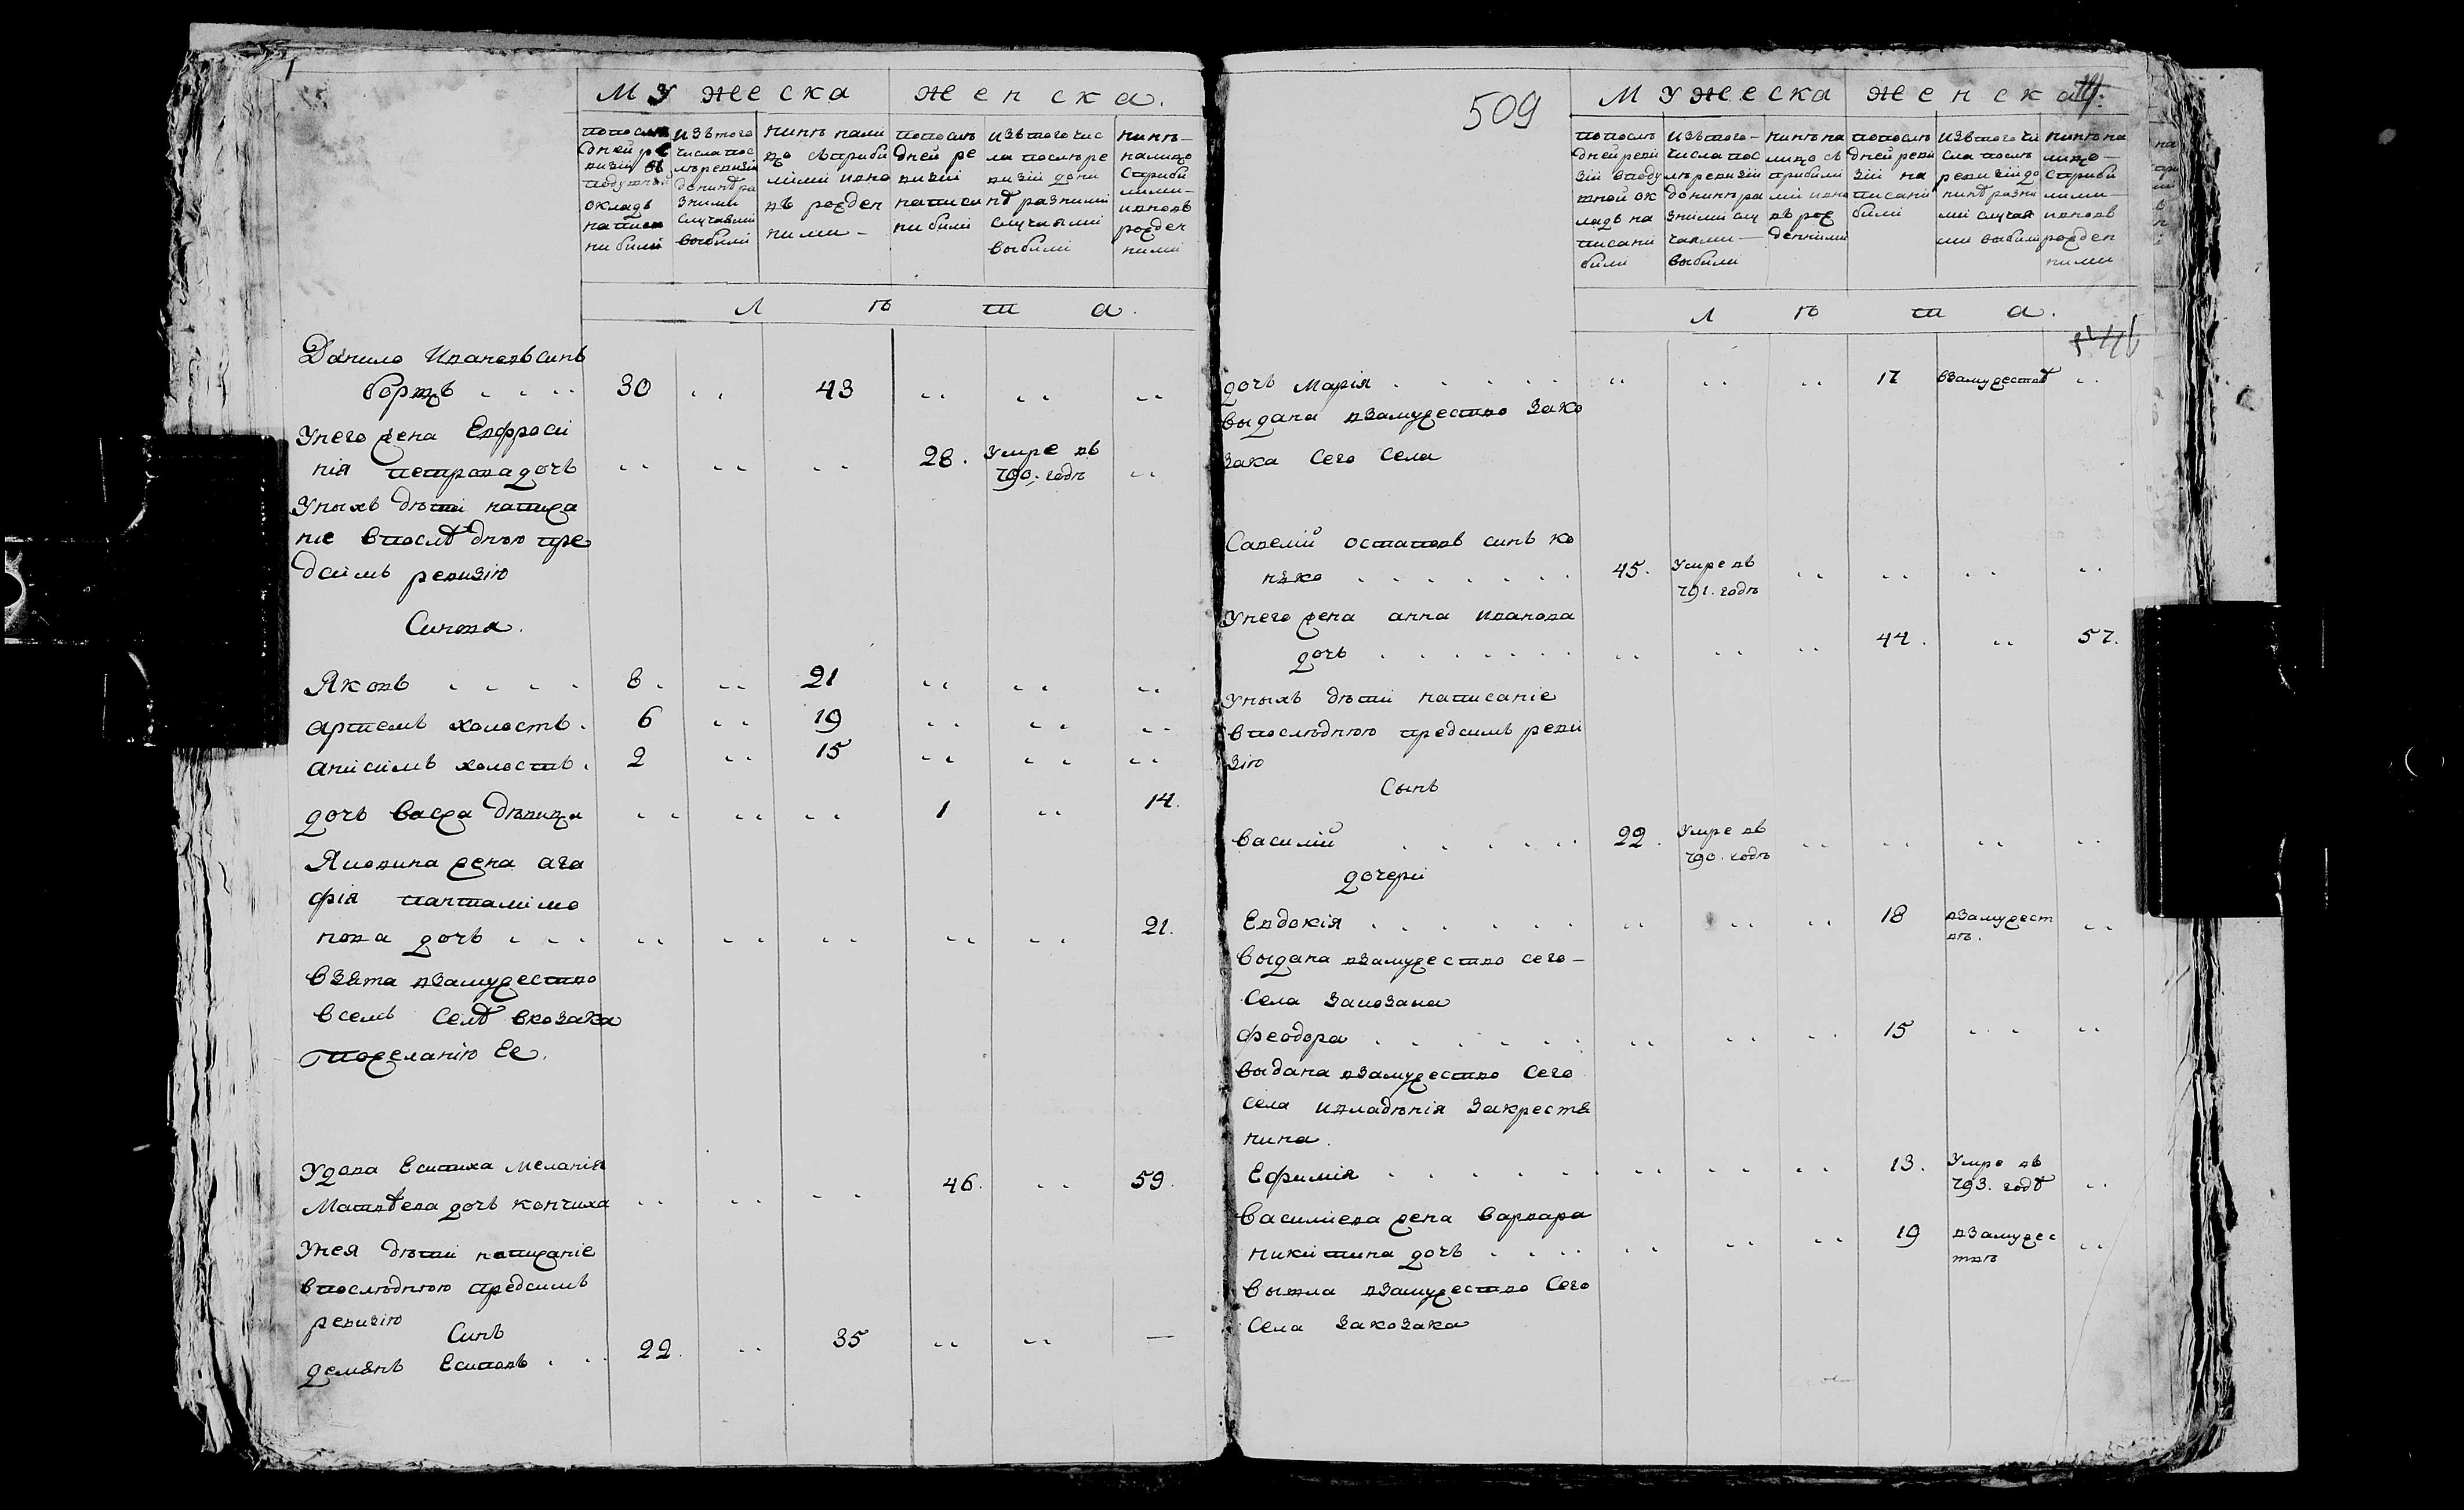 Мужеска Женска.
попослѣ дней ревизіи въ подушной окладъ написани били
изътого числа послѣ ревизіи донинѣ разними случаями выбили
нинѣ налицо съприбилими ивновь рожденними
попослѣ дней ревизіи написани били
изътого числа послѣ ревизіи донинѣ разними случаями выбили
нинѣ налицо сприбилими ивновь рожденними
Л ѣ т а.
Данило Ивановъ синъ
борщъ . . . . 30 . . 43 . . . . . .
Унего жена Евфроси
нія петрова дочь . . . . . . 28. Умре въ 790. годѣ . .
Уныхъ дѣти написа
ние впослѣднюю пре
дсимъ ревизію
Синовя.
Яковъ . . . . 8. . . 21 . . . . . .
артемъ холостъ. 6 . . 19 . . . . . .
анисимъ холостъ. 2 . . 15 . . . . . .
дочь васса дѣвица . . . . . . 1 . . 14.
Яковина жена ага
фія панталимо
нова дочь . . . . . . . . . . . . . 21.
Взята взамужество
всемъ селѣ вкозака
пожеланію Ее.
Удова Есипиха меланія
Матвѣева дочь кончиха . . . . . . 46. . . 59.
Унея дѣти написаніе
впослѣднюю предсимъ
ревизію
Синъ
демянъ Есиповъ . . . 22. . . 35 . . . . —
509
Мужеска Женска
попослѣ дней ревизіи вподушной окладъ написани били
изътого числа послѣ ревизіи донинѣ разними случаями выбили
нинѣ налицо съ прибилими ивновь рожденними
попослѣ дней ревизіи написани били
изътого числа послѣ ревизіи донинѣ разними случаями выбили
нинѣ налицо сприбилими ивновь рожденними
Л ѣ т а.
дочь Марія . . . . . . . . . . . 17 взамужествѣ . .
выдана взамужество зако
зака сего села
Савелій остаповъ синъ ко
нько . . . . . . . 45. Умре въ 791. годѣ . . . . . . . .
Унего жена анна иванова
дочь . . . . . . . . . . . . . 44. . . 57.
Уныхъ дѣти написаніе
впослѣднюю предсимъ реви
зію
Сынъ
василій . . . . . . 22. Умре въ 790. годѣ . . . . . . . .
дочери
Евдокія . . . . . . . . . . . . 18 взамужествѣ. . .
выдана взамужество сего—
села закозака
феодора . . . . . . . . . . . . 15 . . . . .
выдана взамужество сего
села ивладѣнія закрестя
нина.
Ефимія . . . . . . . . . . . . 13. Умре въ 793. годѣ . .
василіева жена варвара
никитина дочь . . . . . . . . . . 19 взамужествѣ . .
вышла взамужество сего
села закозака